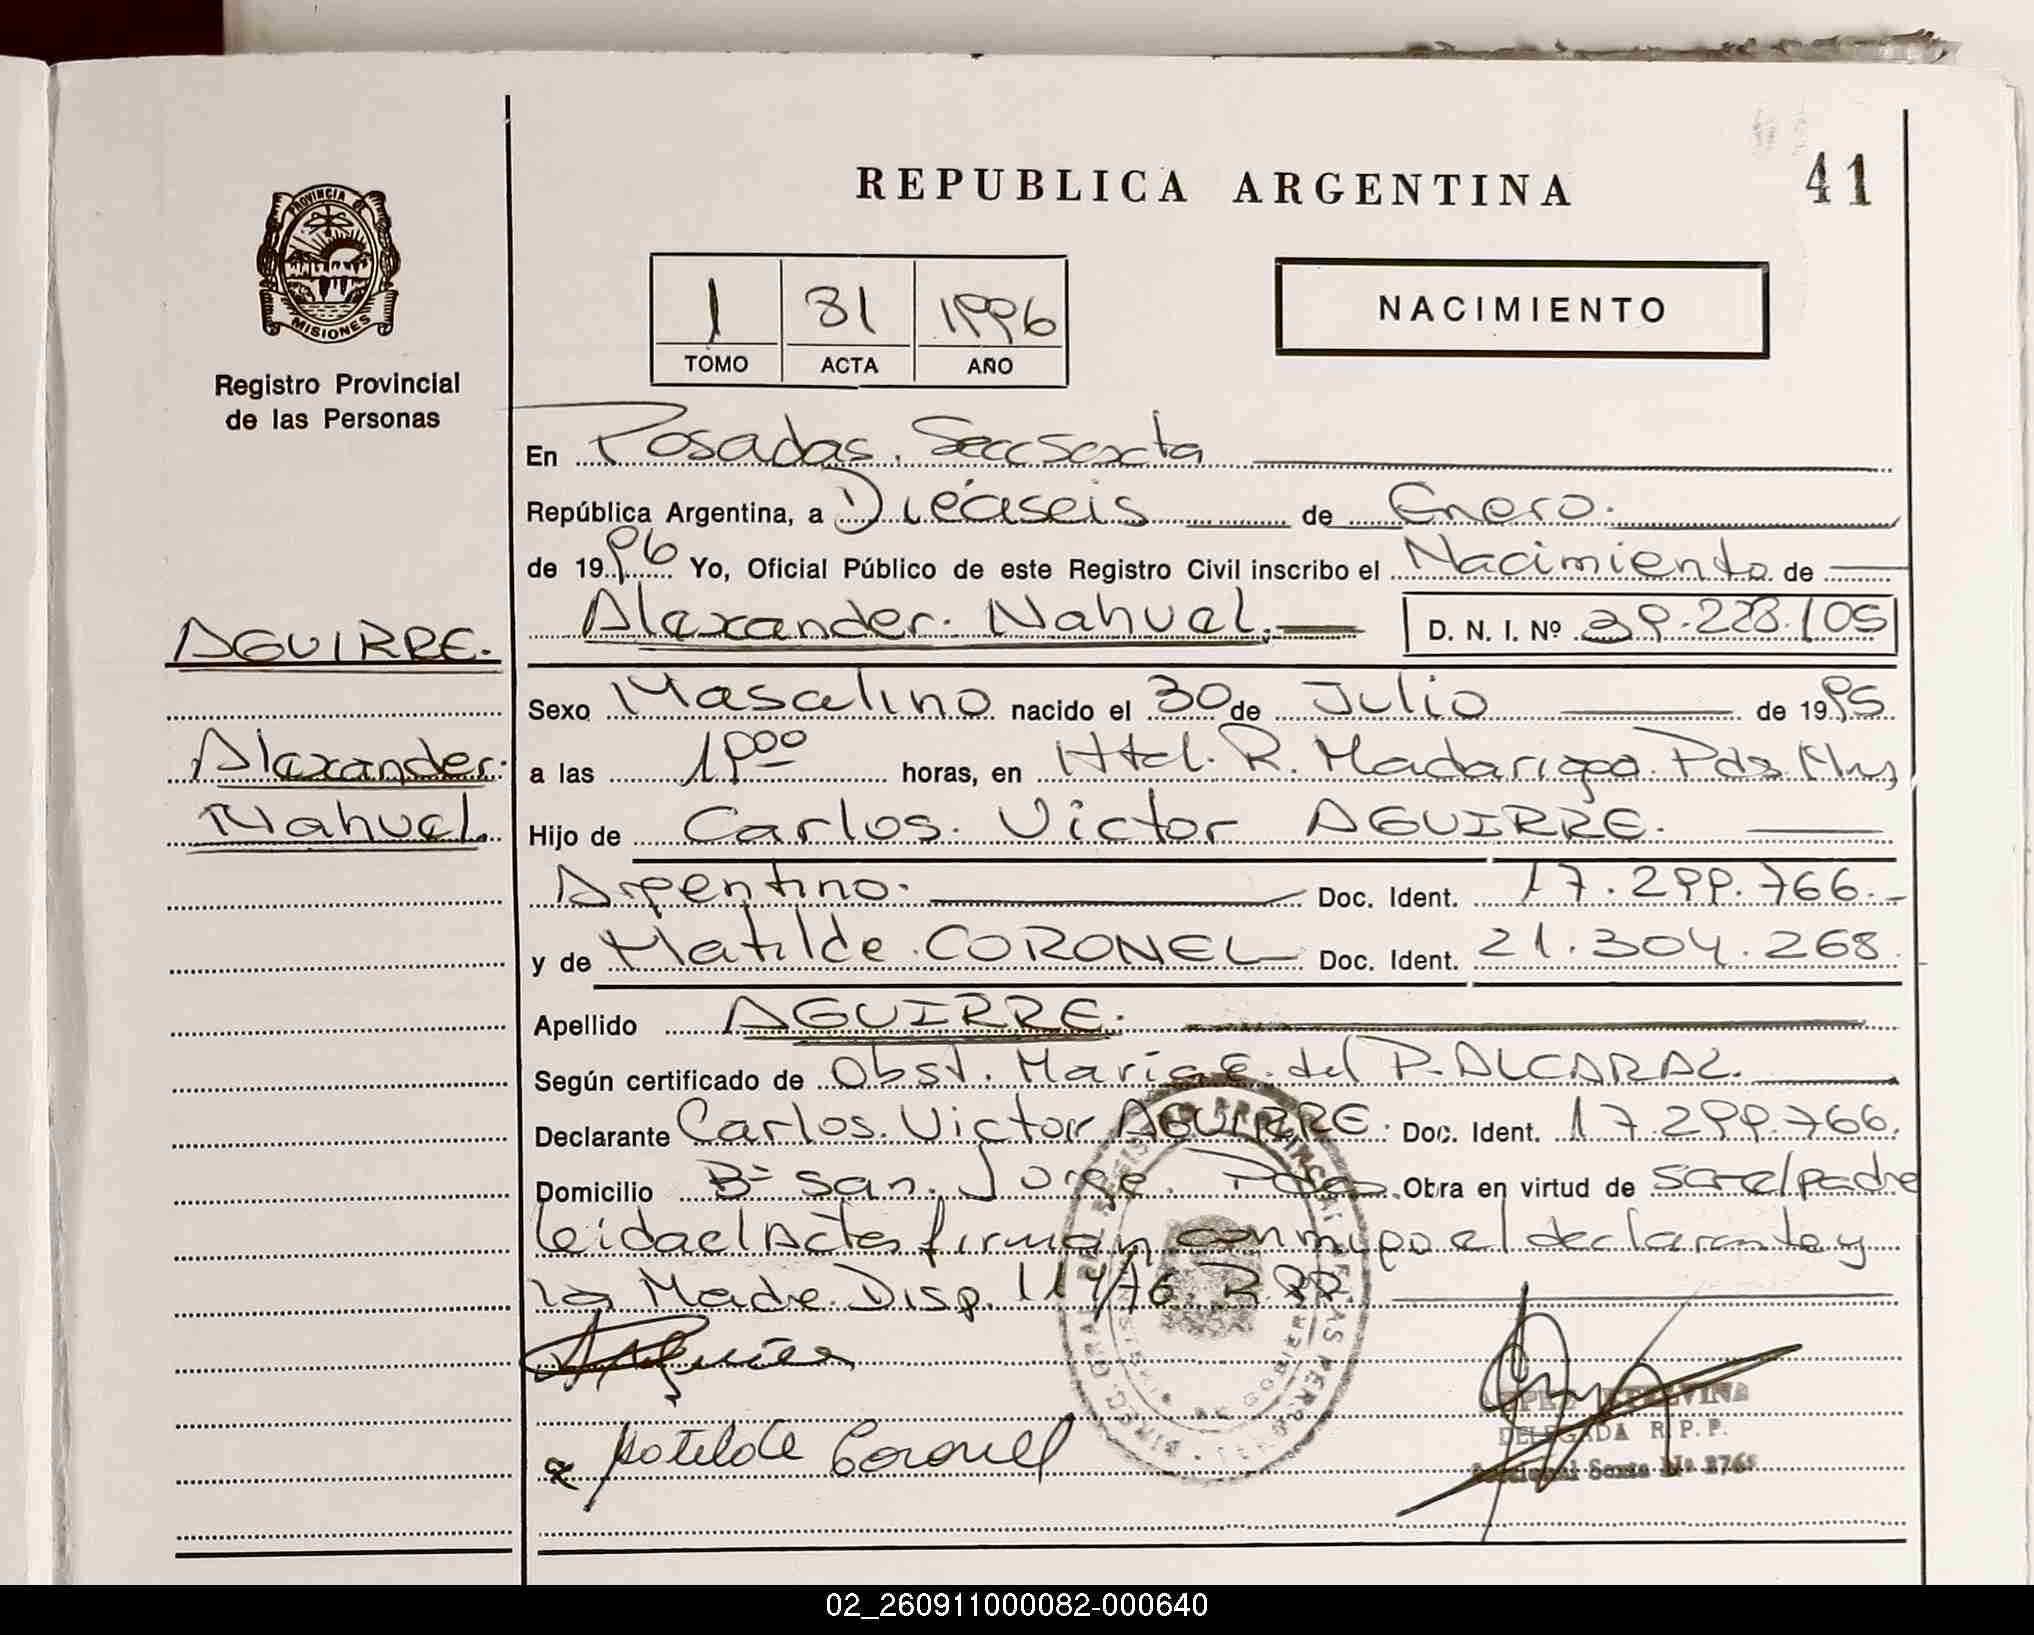 REPUBLICA ARGENTINA
41
PROVINCIA DE
MISIONES
Registro Provincial
de las Personas
1 31 1996
TOMO ACTA AÑO
NACIMIENTO
En Posadas. Secc Sexta
República Argentina, a Dieciseis de Enero.
de 1996 Yo, Oficial Público de este Registro Civil inscribo el Nacimiento de
Alexander. Nahuel. D. N. I. Nº 39.228.105
AGUIRRE.
Alexander.
Nahuel.
Sexo Masculino nacido el 30 de Julio de 1995
a las 19 00 horas, en Htal. R. Madariaga. Pds. Mns
Hijo de Carlos. Victor AGUIRRE.
Argentino. Doc. Ident. 17.299.766.
y de Matilde. CORONEL Doc. Ident. 21.304.268
Apellido AGUIRRE.
Según certificado de Obst. María E. del P. ALCARAZ.
Declarante Carlos. Victor AGUIRRE. Doc. Ident. 17.299.766.
Domicilio Bº San. Jorge. Pdas. Obra en virtud de ser el padre
leida el Acta firman conmigo el declarante y
la Madre. Disp. 114/76. R.PP.
Matilde Coronel
DELEGADA R. P. P.
Seccional Sexta Nº
02_260911000082-000640